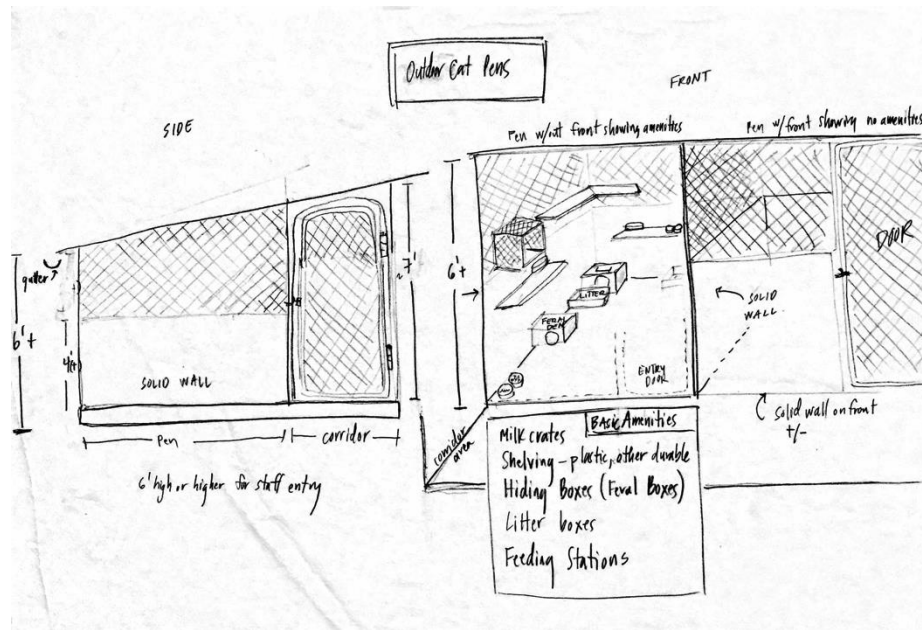 Outdoor Cat Pens
SIDE
FRONT
Pen w/out front showing amenities
Pen w/ front showing no amenities
gutter
6'+
4'
SOLID WALL
Pen
corridor
6' high or higher for staff entry
~7'
6'+
LITTER
FERAL DEN
ENTRY DOOR
corridor area
SOLID WALL
DOOR
solid wall on front
+/-
Basic Amenities
Milk crates
Shelving - plastic, other durable
Hiding Boxes (Feral Boxes)
Litter boxes
Feeding Stations